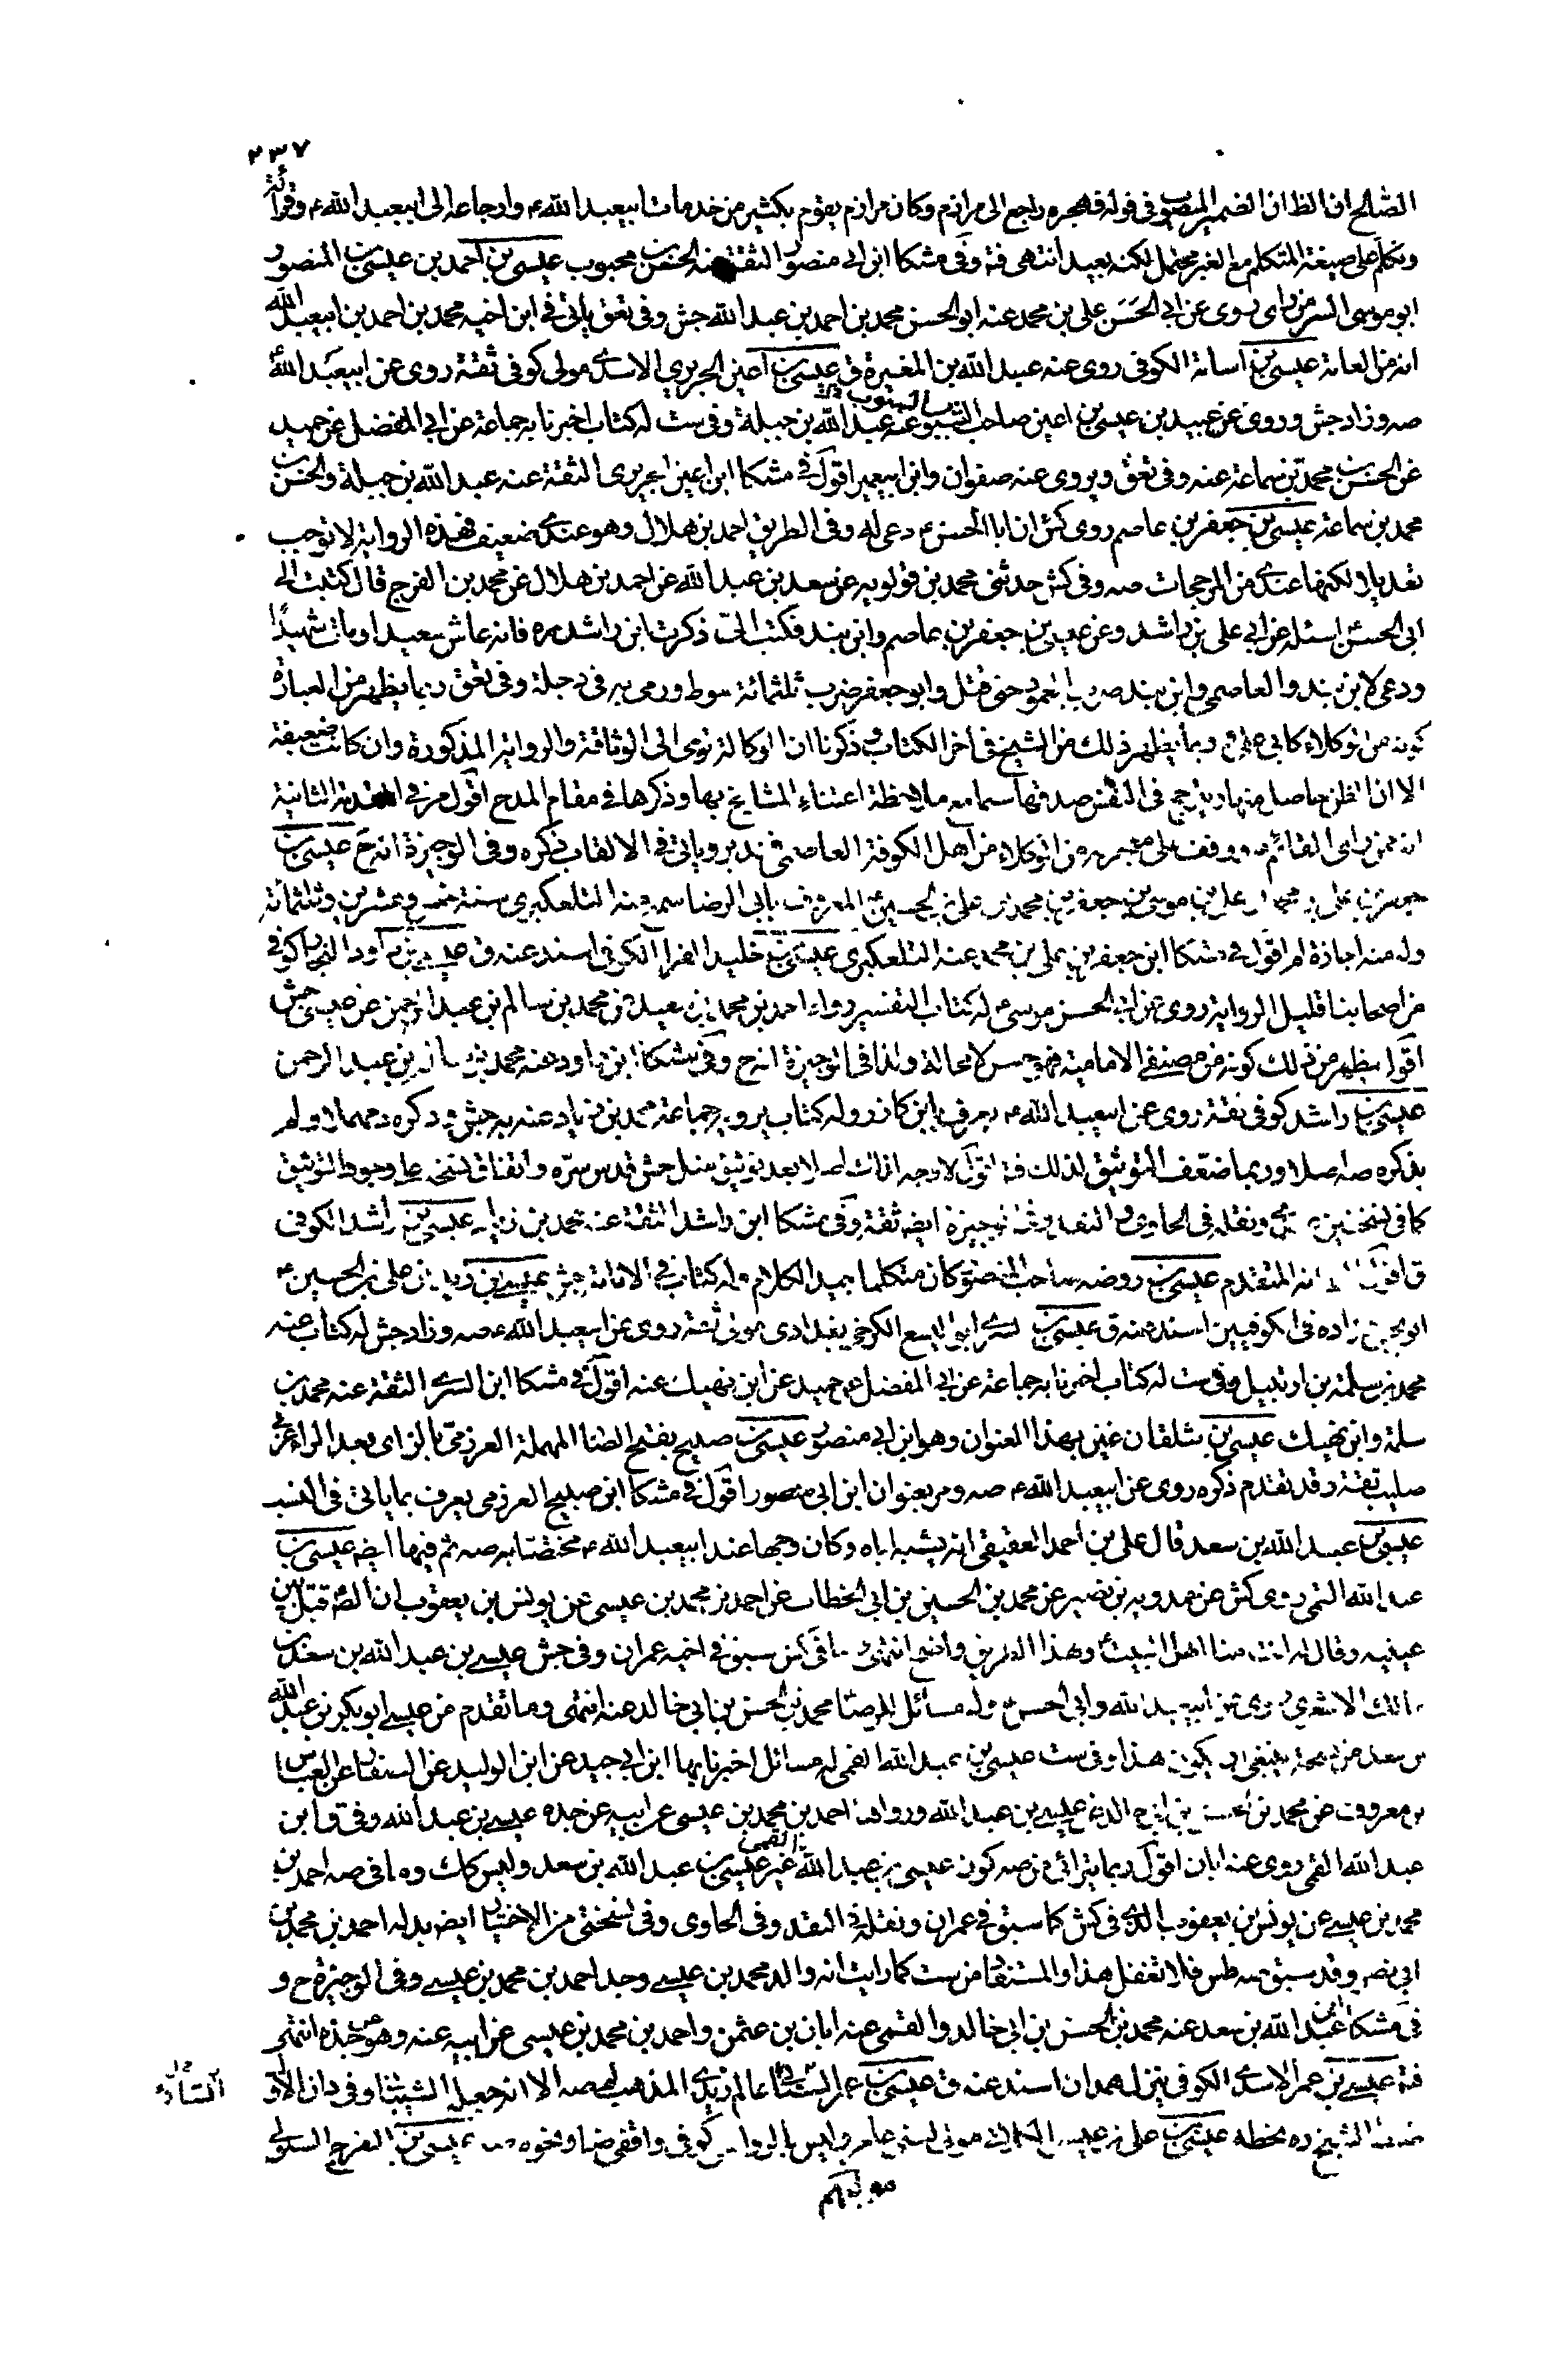 ٢٣٧
الصالح ان الظاان الضمير المنصوب في قوله فهجره راجع الى مرازم وكان مرازم يقوم بكثير من خدمات ابيعبد الله ء وارجاعه الى ابيعبد الله ء وقرائة
وتكلم على صيغة المتكلم مع الغير محتمل لكنه بعيد انتهى فة وفي مشكا ابن ابي منصور الثقة عنه الحسن بن محبوب عيسى بن احمد بن عيسى بن المنصور
ابو موسى السر من راى روى عن ابي الحسن علي بن محمد عنه ابو الحسن محمد بن احمد بن عبد الله جش وفي تعق ياتي في ابن اخيه محمد بن احمد بن ابيعبد الله
انه من العامة عيسى بن اسامة الكوفي روى عنه عبيد الله بن المغيرة ق عيسى بن اعين الجريري الاسدي مولى كوفي ثقة روى عن ابيعبد الله ء
صه وزاد جش وروى عن عبيد بن عيسى بن اعين صاحب السبوب عنه عبد الله بن جبلة وفي ست له كتاب اخبرنا به جماعة عن ابي المفضل عن حميد
عن الحسن بن محمد بن سماعة عنه وفي تعق ويروى عنه صفوان وابن ابيعمير اقول في مشكا ابن اعين الجريرى الثقة عنه عبد الله بن جبلة والحسن بن
محمد بن سماعة عيسى بن جعفر بن عاصم روى كش ان ابا الحسن ء دعى له وفي الطريق احمد بن هلال وهو عندي ضعيف فهذه الرواية لا توجب
تعديلا لكنها عندي من المرجحات صه وفي كش حدثني محمد بن قولويه عن سعد بن عبد الله عن احمد بن هلال عن محمد بن الفرج قال كتبت الى
ابي الحسن ء اسئله عن ابي علي بن راشد وعن عيسى بن جعفر بن عاصم وابن بند فكتب الى ذكرت ابن راشد ره فانه عاش سعيدا ومات شهيدا
ودعى لابن بند والعاصمي وابن بند ضرب بالعمود حتى قتل وابو جعفر ضرب ثلثمائة سوط ورمى به في دجلة وفي تعق ربما يظهر من العبارة
كونه من الوكلاء كابي علي وربما يظهر ذلك من الشيخ في اخر الكتاب وذكرنا ان الوكالة تومى الى الوثاقة والرواية المذكورة وان كانت ضعيفة
الا ان الظن حاصل منها ويترجح في النفس صدقها سيما مع ملاحظة اعتناء المشايخ بها وذكرها في مقام المدح اقول مر في المقدمة الثانية
انه ممن راى القائم ء ووقف على معجزته من الوكلاء من اهل الكوفة العاصمي فتدبر وياتي في الالقاب ذكره وفي الوجيزة انه ح عيسى بن
جعفر بن علي بن محمد بن علي بن موسى بن جعفر بن محمد بن علي بن الحسين ء المعروف بابي الرضا سمع منه التلعكبري سنة خمس وعشرين وثلثمائة
وله منه اجازة لم اقول في مشكا ابن جعفر بن علي بن محمد عنه التلعكبري عيسى بن خليد الفراء الكوفي اسند عنه ق عيسى بن داود النجار كوفي
من اصحابنا قليل الرواية روى عن ابي الحسن موسى ء له كتاب التفسير رواه احمد بن محمد بن سعيد عن محمد بن سالم بن عبد الرحمن عن عيسى جش
اقول يظهر من ذلك كونه من مصنفي الامامية فهو حسن لا محالة ولذا في الوجيزة انه ح وفي مشكا ابن داود عنه محمد بن سالم بن عبد الرحمن
عيسى بن راشد كوفي ثقة روى عن ابيعبد الله ء يعرف بابن كازر وله كتاب يرويه جماعة محمد بن زياد عنه به جش وذكره د مهملا ولم
يذكره صه اصلا وربما ضعف التوثيق لذلك فة اقول لا وجه لذلك اصلا بعد توثيق مثل جش قدس سره واتفاق نسخه على وجود التوثيق
كما في نسختين ونقله في الحاوي والنقد وفي الوجيزة ايضه ثقة وفي مشكا ابن راشد الثقة عنه محمد بن زياد عيسى بن راشد الكوفي
ق اقول انه المتقدم عيسى بن روضه صاحب المنصور كان متكلما جيد الكلام وله كتاب في الامامة جش عيسى بن زيد بن علي بن الحسين ء
ابو يحيى زاده في الكوفيين اسند عنه ق عيسى بن السري ابو اليسع الكرخي بغدادى مولى ثقة روى عن ابيعبد الله ء صه وزاد جش له كتاب عنه
محمد بن سلمة بن ارتبيل وفي ست له كتاب اخبرنا به جماعة عن ابي المفضل عن حميد عن ابن نهيك عنه اقول في مشكا ابن السري الثقة عنه محمد بن
سلمة وابن نهيك عيسى بن شلقان غير بهذا العنوان وهو ابن ابي منصور عيسى بن صبيح بفتح الصاد المهملة العرزمي بالزاى بعد الراء عربي
صليب ثقة وقد تقدم ذكره روى عن ابيعبد الله ء صه ومر بعنوان ابن ابي منصور اقول في مشكا ابن صبيح العرزمى يعرف بما ياتى في النسب
عيسى بن عبد الله بن سعد قال علي بن احمد العقيقي انه يشبه اباه وكان وجها عند ابيعبد الله ء مختصا به صه ثم فيها ايضه عيسى بن
عبد الله القمي روى كش عن حمدويه بن نصير عن محمد بن الحسين بن ابي الخطاب عن احمد بن محمد بن عيسى عن يونس بن يعقوب ان الصء قبل بين
عينيه وقال له انت منا اهل البيت وهذا الطريق واضح انتهى ما في كش سبق في اخيه عمران وفي جش عيسى بن عبد الله بن سعد بن
مالك الاشعري روى عن ابيعبد الله وابي الحسن وله مسائل للرضا محمد بن الحسن بن ابي خالد عنه انتهى وما تقدم من عيسى ابو بكر بن عبد الله
بن سعد ينبغي ان يكون هذا وفي ست عيسى بن عبد الله القمي له مسائل اخبرنا بها ابن ابي جيد عن ابن الوليد عن الصفار عن العباس
بن معروف عن محمد بن الحسن بن ابي خالد عن عيسى بن عبد الله ورواها احمد بن محمد بن عيسى عن ابيه عن جده عيسى بن عبد الله وفي ق ابن
عبد الله القمي روى عنه ابان اقول ربما يترائى من صه كون عيسى بن عبد الله القمي غير عيسى بن عبد الله بن سعد وليس كك وما في صه احمد بن
محمد بن عيسى عن يونس بن يعقوب الذي في كش كما سبق في عمران ونقله في النقد وفي الحاوى وفي نسختي من الاختيار ايضه بدله احمد بن محمد بن
ابي نصر وقد سبق عنه طس فلا تغفل هذا والمستفاد من ست كما رايت انه والد محمد بن عيسى وجد احمد بن محمد بن عيسى وفي الوجيزة ح و
في مشكا ابن عبد الله بن سعد عنه محمد بن الحسن بن ابي خالد والقمي عنه ابان بن عثمن واحمد بن محمد بن عيسى عن ابيه عنه وهو عن جده انتهى
فة عيسى بن عمر الاسدي الكوفي نزل همدان اسند عنه ق عيسى بن عمر السناني عالم زيدي المذهب لم صه الا انه جعله الشيباني وفي د ان الاول
الشيخ ره بخطه عيسى بن علي بن عيسى مولى لبني عامر وليس بالرواسي كوفي واقفي ونحوه عيسى بن الفرج السلولي
مولاهم